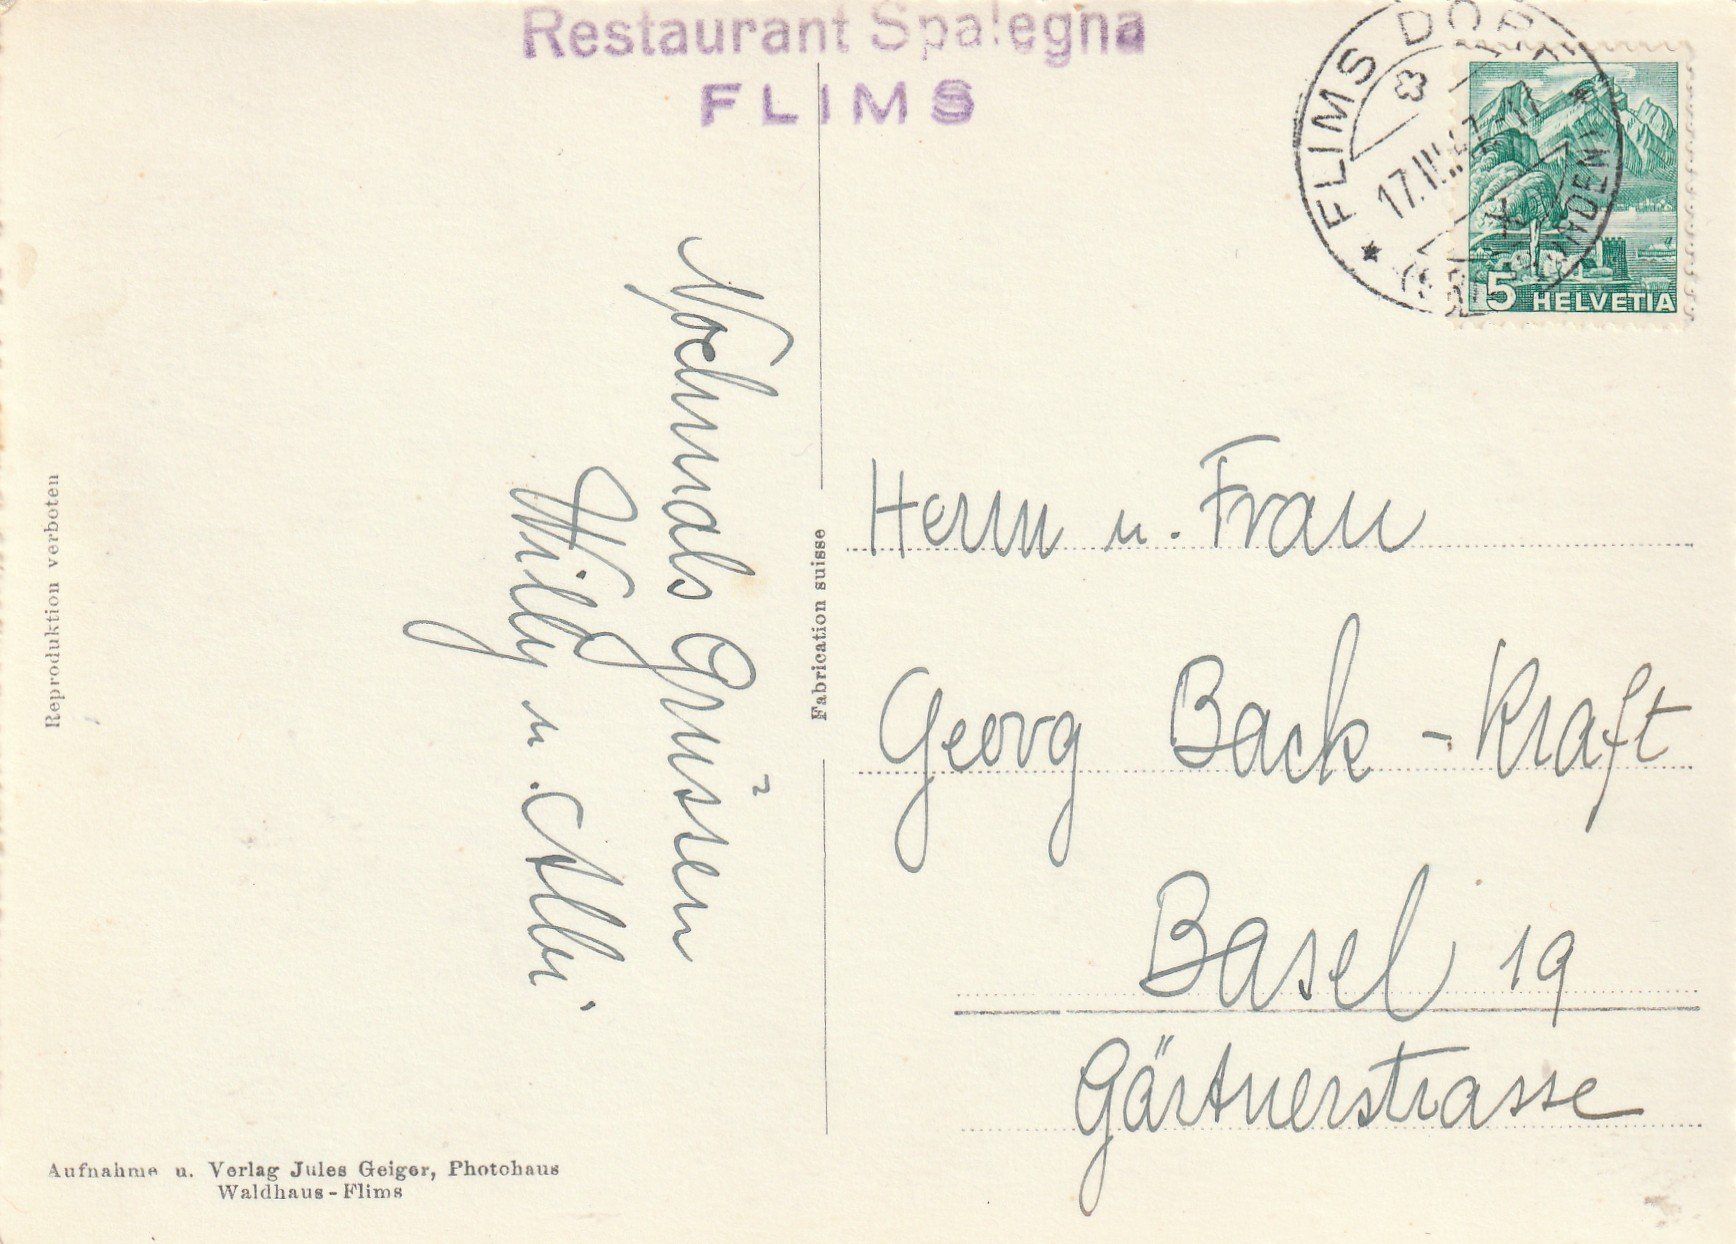 Restaurant Spalegna
FLIMS
FLIMS DORF
17.III.
5 HELVETIA
Nochmals Grüssen
Willy u.
Reproduktion verboten
Fabrication suisse
Herrn u. Frau
Georg Back-Kraft
Basel 19
Gärtnerstrasse
Aufnahme u. Verlag Jules Geiger, Photohaus
Waldhaus-Flims